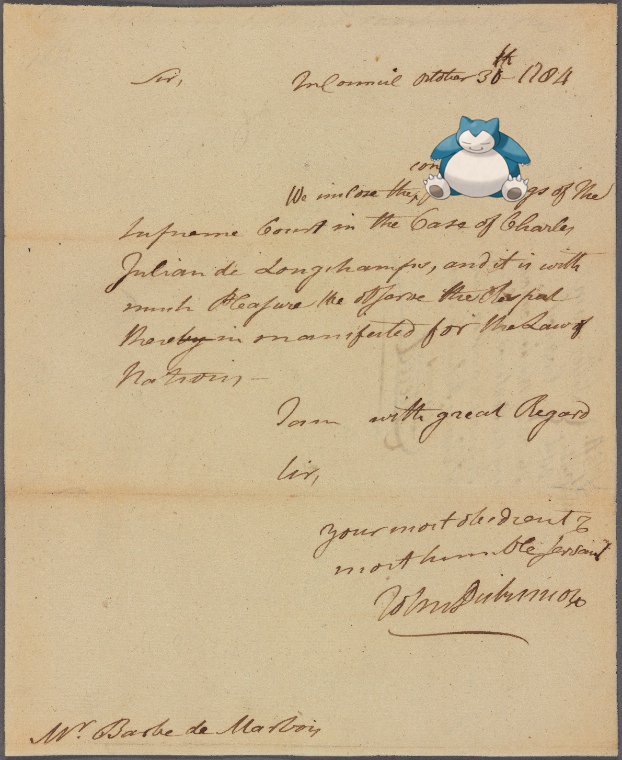 Sir, In Council October 30th 1784
con
We inclose the gs of the
Supreme Court in the Case of Charles
Julian de Longchamps, and it is with
much Pleasure We observe the Respect
thereby in manifested for the Law of
Nations —
I am with great Regard
Sir,
your most obedient &
most humble Servant
John Dickinson
Mr. Barbe de Marbois